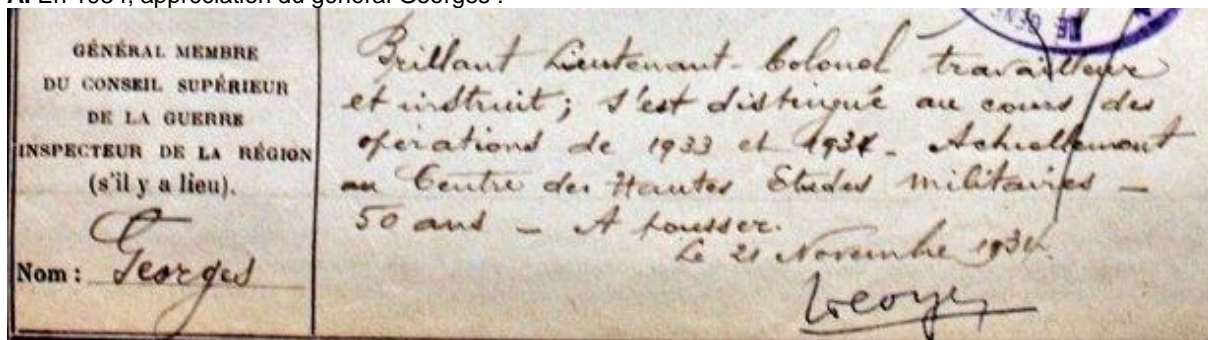 A. En 1934, appréciation du général Georges :
GÉNÉRAL MEMBRE
DU CONSEIL SUPÉRIEUR
DE LA GUERRE
INSPECTEUR DE LA RÉGION
(s'il y a lieu).
Nom : Georges
Brillant Lieutenant-Colonel travailleur
et instruit ; s'est distingué au cours des
opérations de 1933 et 1934 - Actuellement
au Centre des Hautes Etudes militaires -
50 ans - A pousser.
Le 21 Novembre 1934.
Georges